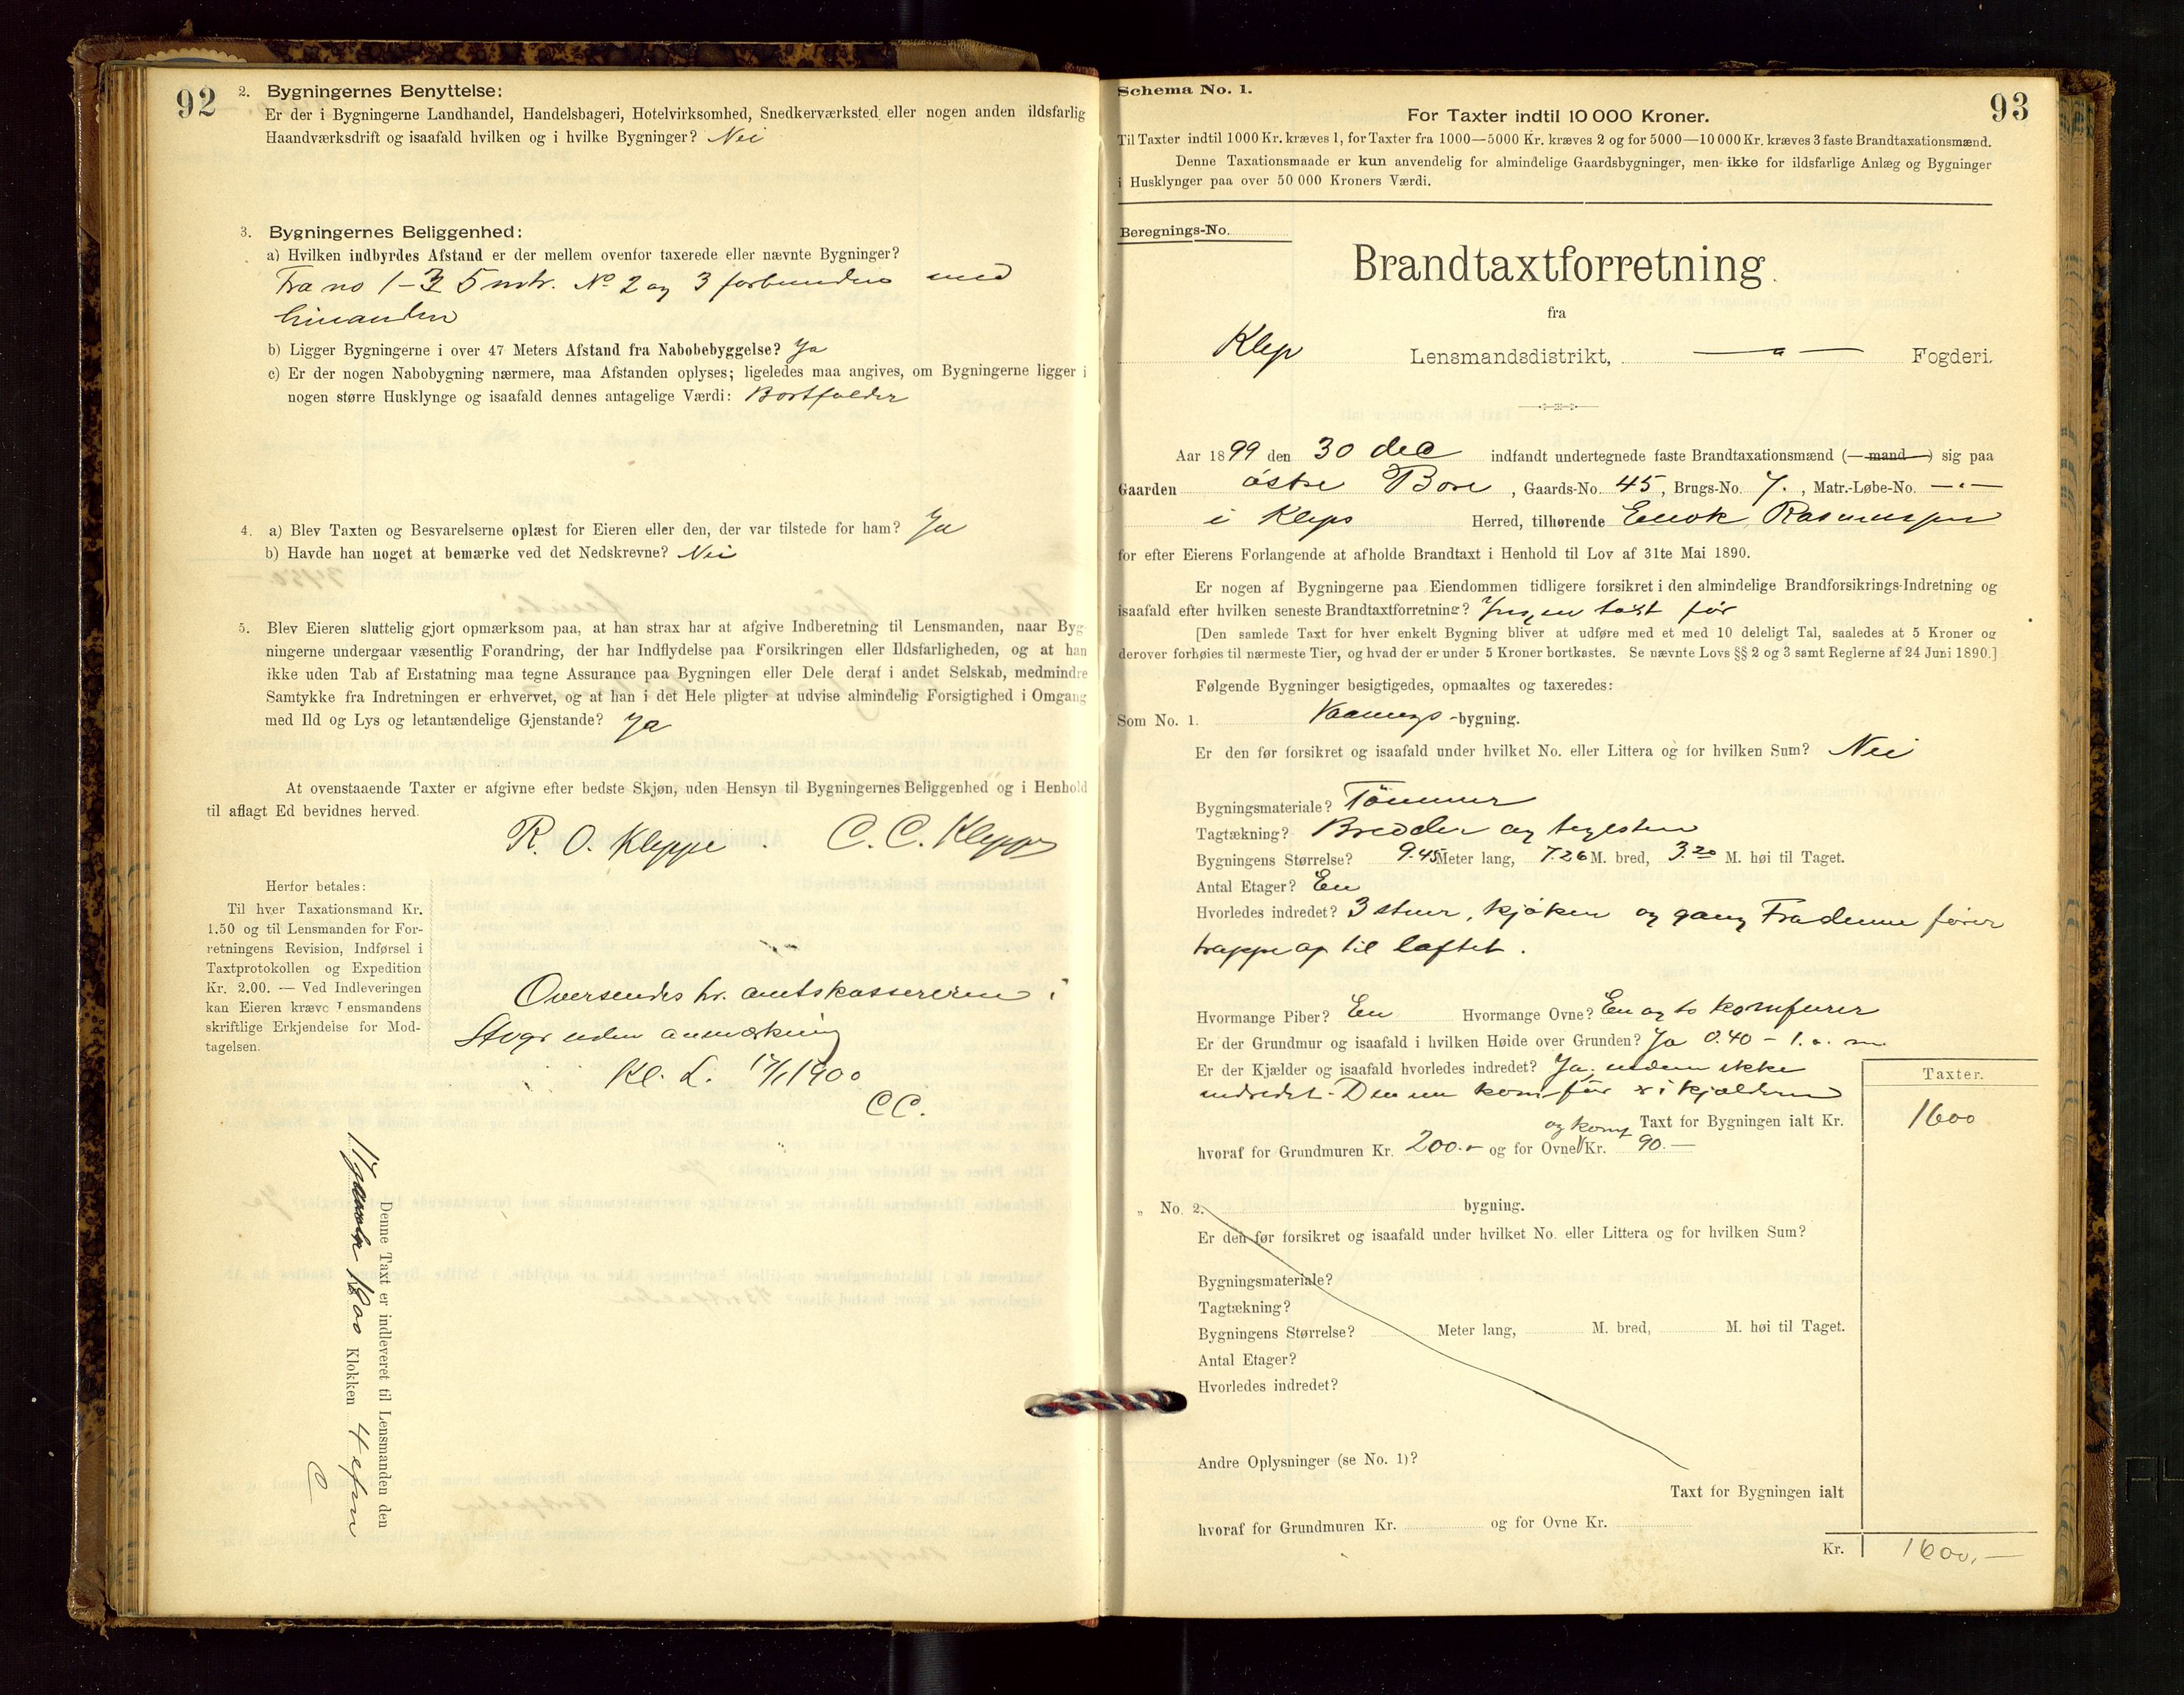 92
2. Bygningernes Benyttelse:
Er der i Bygningerne Landhandel, Handelsbageri, Hotelvirksomhed, Snedkerværksted eller nogen anden ildsfarlig
Haandværksdrift og isaafald hvilken og i hvilke Bygninger? Nei
3. Bygningernes Beliggenhed:
a) Hvilken indbyrdes Afstand er der mellem ovenfor taxerede eller nævnte Bygninger?
Fra no 1-3 5 mtr. No 2 og 3 forbundne med
hinanden
b) Ligger Bygningerne i over 47 Meters Afstand fra Nabobebyggelse? Ja
c) Er der nogen Nabobygning nærmere, maa Afstanden oplyses; ligeledes maa angives, om Bygningerne ligger i
nogen større Husklynge og isaafald dennes antagelige Værdi: Bortfalder
4. a) Blev Taxten og Besvarelserne oplæst for Eieren eller den, der var tilstede for ham? Ja
b) Havde han noget at bemærke ved det Nedskrevne? Nei
5. Blev Eieren sluttelig gjort opmærksom paa, at han strax har at afgive Indberetning til Lensmanden, naar Byg-
ningerne undergaar væsentlig Forandring, der har Indflydelse paa Forsikringen eller Ildsfarligheden, og at han
ikke uden Tab af Erstatning maa tegne Assurance paa Bygningen eller Dele deraf i andet Selskab, medmindre
Samtykke fra Indretningen er erhvervet, og at han i det Hele pligter at udvise almindelig Forsigtighed i Omgang
med Ild og Lys og letantændelige Gjenstande? Ja
At ovenstaaende Taxter er afgivne efter bedste Skjøn, uden Hensyn til Bygningernes Beliggenhed og i Henhold
til aflagt Ed bevidnes herved.
R. O. Kleppe. C. C. Klepp
Herfor betales:
Til hver Taxationsmand Kr.
1.50 og til Lensmanden for For-
retningens Revision, Indførsel i
Taxtprotokollen og Expedition
Kr. 2.00. — Ved Indleveringen
kan Eieren kræve Lensmandens
skriftlige Erkjendelse for Mod-
tagelsen.
Oversendes hr. amtskassereren i
Stvgr uden anmærkning
Kl. L. 17/1 1900
CC.
Denne Taxt er indleveret til Lensmanden den
17 januar 1900 Klokken 4 efm
C
93
Schema No. 1.
For Taxter indtil 10 000 Kroner.
Til Taxter indtil 1000 Kr. kræves 1, for Taxter fra 1000—5000 Kr. kræves 2 og for 5000—10 000 Kr. kræves 3 faste Brandtaxationsmænd.
Denne Taxationsmaade er kun anvendelig for almindelige Gaardsbygninger, men ikke for ildsfarlige Anlæg og Bygninger
i Husklynger paa over 50 000 Kroners Værdi.
Beregnings-No.
Brandtaxtforretning
fra
Klep Lensmandsdistrikt, — " — Fogderi.
Aar 1899 den 30 dec indfandt undertegnede faste Brandtaxationsmænd (—mand—) sig paa
Gaarden østre Bore, Gaards-No. 45, Brugs-No. 7., Matr.-Løbe-No. — " —
i Klepp Herred, tilhørende Enok Rasmussen
for efter Eierens Forlangende at afholde Brandtaxt i Henhold til Lov af 31te Mai 1890.
Er nogen af Bygningerne paa Eiendommen tidligere forsikret i den almindelige Brandforsikrings-Indretning og
isaafald efter hvilken seneste Brandtaxtforretning? Ingen taxt før
[Den samlede Taxt for hver enkelt Bygning bliver at udføre med et med 10 deleligt Tal, saaledes at 5 Kroner og
derover forhøies til nærmeste Tier, og hvad der er under 5 Kroner bortkastes. Se nævnte Lovs §§ 2 og 3 samt Reglerne af 24 Juni 1890.]
Følgende Bygninger besigtigedes, opmaaltes og taxeredes:
Som No. 1. Vaanings-bygning.
Er den før forsikret og isaafald under hvilket No. eller Littera og for hvilken Sum? Nei
Bygningsmateriale? Tömmer
Tagtækning? Bredder og teglsten
Bygningens Størrelse? 9.45 Meter lang, 7.26 M. bred, 3.20 M. høi til Taget.
Antal Etager? En
Hvorledes indredet? 3 stuer, kjøken og gang Fra denne fører
trappe op til loftet.
Hvormange Piber? En Hvormange Ovne? En og to komfurer
Er der Grundmur og isaafald i hvilken Høide over Grunden? Ja 0.40 – 1.0 m
Er der Kjælder og isaafald hvorledes indredet? Ja, men ikke
indredet. Den ene komfur er i kjælderen
Taxter.
Taxt for Bygningen ialt Kr. 1600
hvoraf for Grundmuren Kr. 200.- og for Ovne og komf Kr. 90.—
„ No. 2. bygning.
Er den før forsikret og isaafald under hvilket No. eller Littera og for hvilken Sum?
Bygningsmateriale?
Tagtækning?
Bygningens Størrelse? Meter lang, M. bred, M. høi til Taget.
Antal Etager?
Hvorledes indredet?
Andre Oplysninger (se No. 1)?
Taxt for Bygningen ialt
hvoraf for Grundmuren Kr. og for Ovne Kr.
Kr. 1600.—